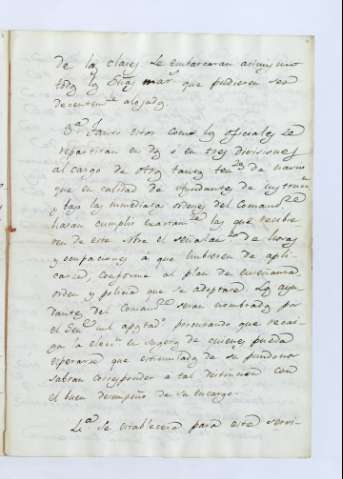 de las clases. Se embarcaran asimismo
todos los Guas. mars. que pudieren ser
decentemte. alojados.
3a. Tanto estos como los oficiales se
repartiran en dos ó en tres divisiones
al cargo de otros tantos tentes. de navio
que en calidad de Ayudantes de
y bajo las inmediatas ordenes del Comandte.
haran cumplir exactamte. las que recibie
ren de este sobre el señalamto. de horas
y ocupaciones á que hubieren de apli-
carse, conforme al plan de enseñanza
orden y policia que se adoptare. Los ayu-
dantes del Comandte. seran nombrados por
el Genl. procurando que recai-
ga la eleccn. en sugetos de quienes pueda
esperarse que estimulados de su pundonor
sabran corresponder á tal distincion con
el buen desempeño de su encargo.
4a. Se establecerá para este servi-